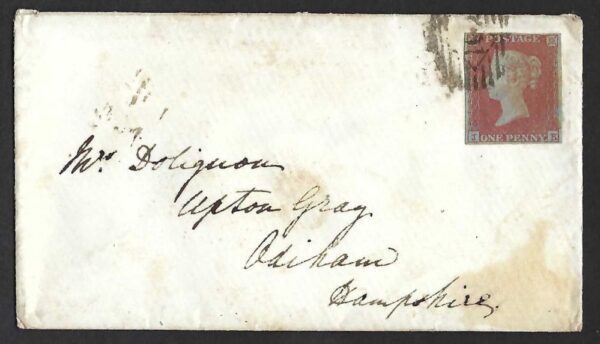 POSTAGE
ONE PENNY
Mrs Dolignon
Upton Gray
Odiham
Hampshire.